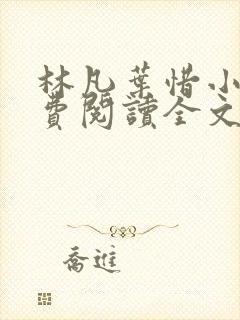 林凡葉惜小
費閱讀全文
喬進